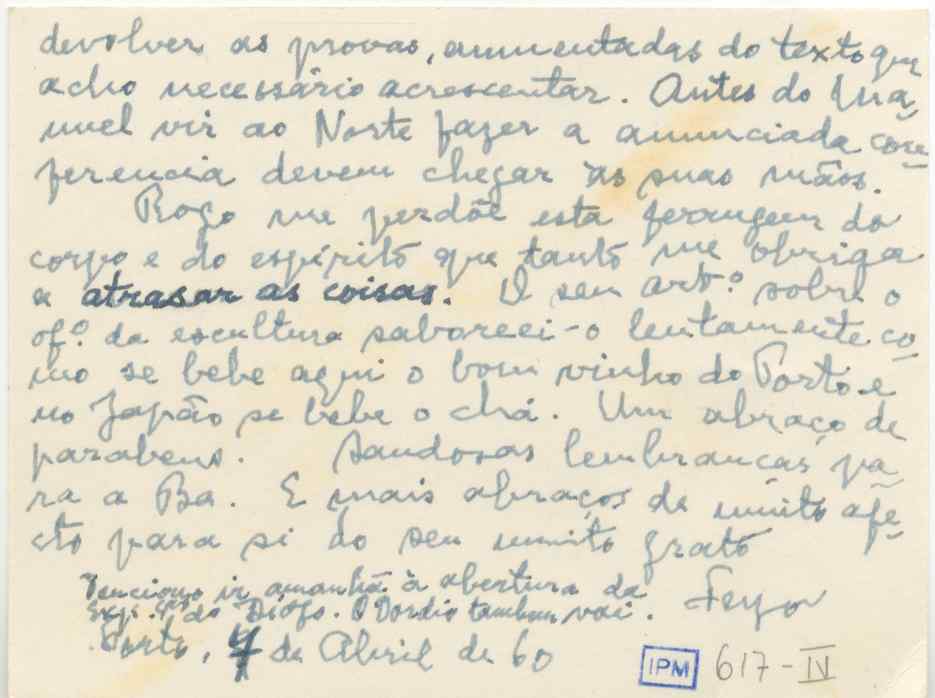 devolver as provas, aumentadas do texto que
acho necessário acrescentar. Antes do Ma-
nuel vir ao Norte fazer a anunciada con-
ferencia devem chegar às suas mãos.
Rogo me perdôe esta ferrugem do
corpo e do espírito que tanto me obriga
a atrasar as coisas. O seu artº. sobre o
ofº. da escultura saboreei-o lentamente co-
mo se bebe aqui o bom vinho do Porto e
no Japão se bebe o chá. Um abraço de
parabens. Saudosas lembranças pa-
ra a Ba. E mais abraços de muito afe-
cto para si do seu muito grato
Tenciono ir amanhã à abertura da
do Diogo. O Dordio tambem vai. Feyo
Porto, 7 de Abril de 60
IPM 617-IV